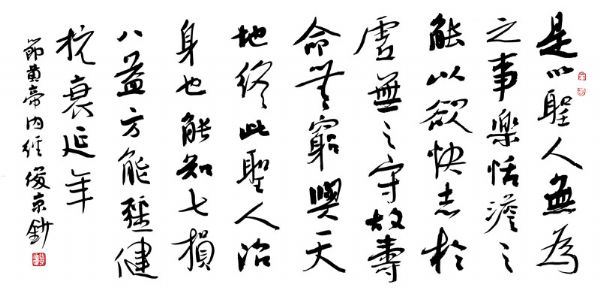 是以聖人無為
之事樂恬澹之
能以欲快志於
虛無之守故壽
命無窮與天
地終此聖人治
身也能知七損
八益方能彊健
抗衰延年
節黃帝內經 俊京鈔